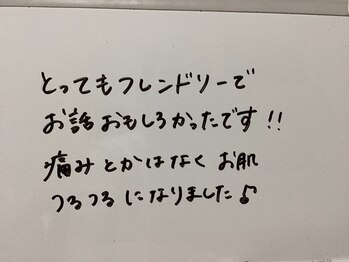 とってもフレンドリーで
お話おもしろかったです!!
痛みとかはなくお肌
つるつるになりました♪